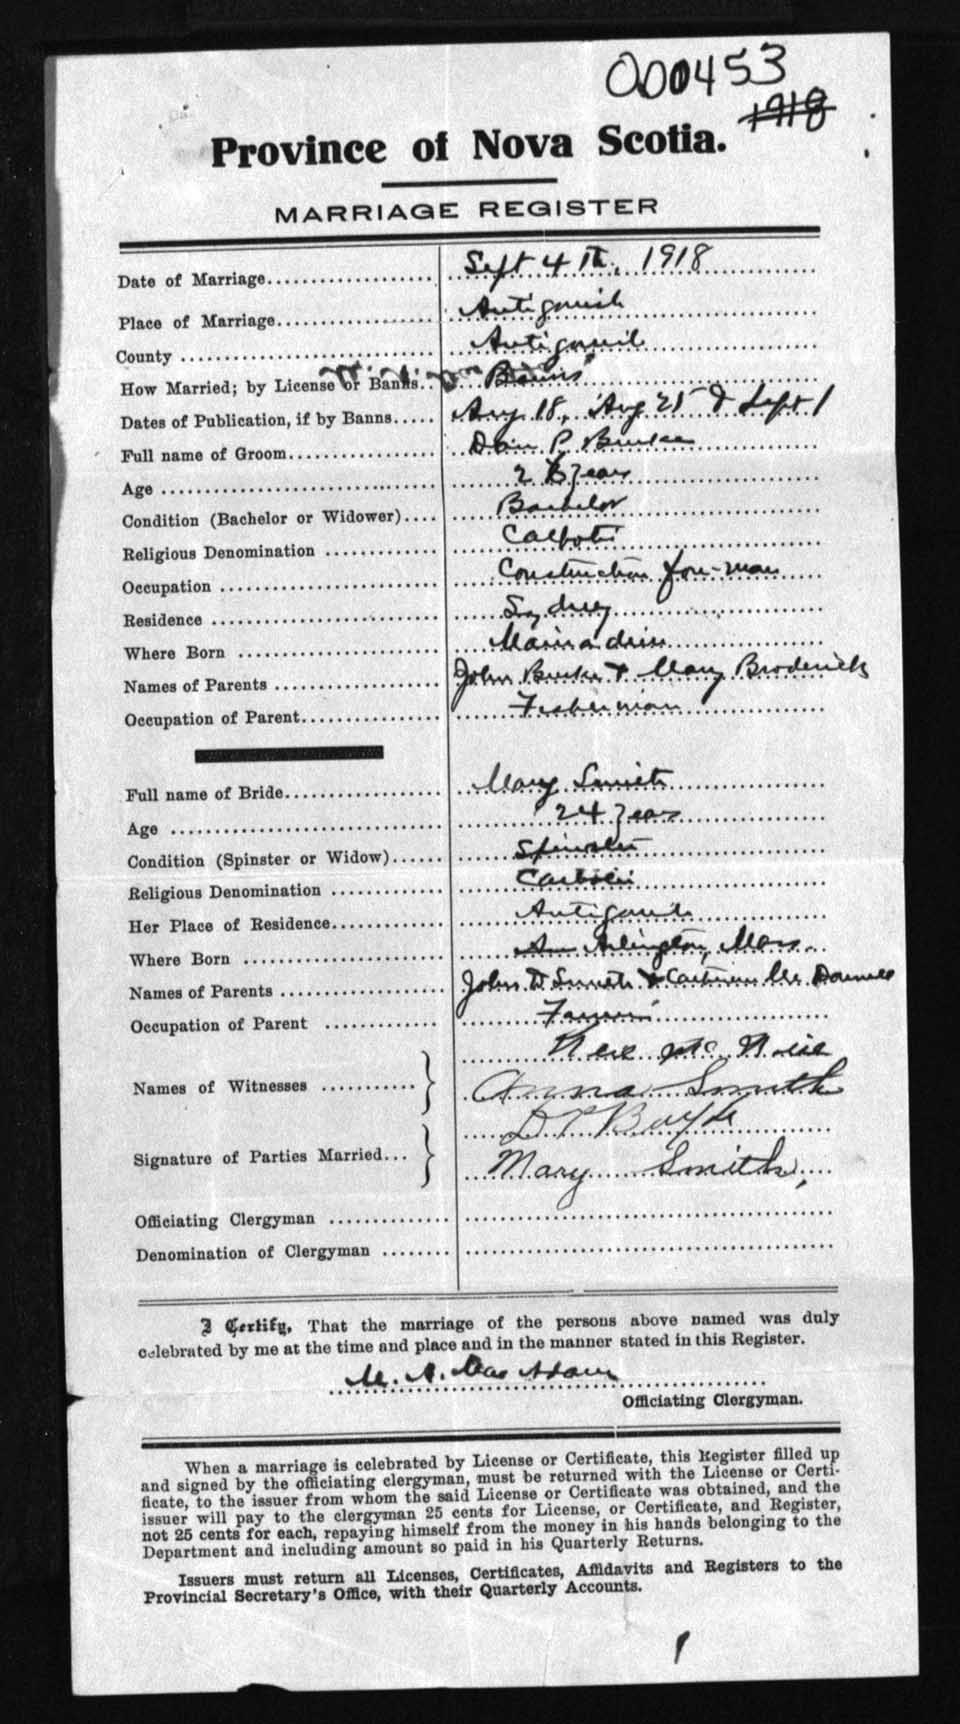 000453
1918
Province of Nova Scotia.
MARRIAGE REGISTER
Date of Marriage Sept 4th, 1918
Place of Marriage Antigonish
County Antigonish
How Married; by License or Banns Banns
Dates of Publication, if by Banns Aug 18, Aug 25 & Sept 1
Full name of Groom Dan P. Burke
Age years
Condition (Bachelor or Widower) Bachelor
Religious Denomination Catholic
Occupation Construction foreman
Residence Sydney
Where Born Main a dieu
Names of Parents John Burke & Mary Broderick
Occupation of Parent Fisherman
Full name of Bride Mary Smith
Age 24 years
Condition (Spinster or Widow) Spinster
Religious Denomination Catholic
Her Place of Residence Antigonish
Where Born Arlington, Mass
Names of Parents John Smith &
Occupation of Parent Farmer
Names of Witnesses
Anna Smith
Signature of Parties Married
Mary Smith
Officiating Clergyman
Denomination of Clergyman
I Certify, That the marriage of the persons above named was duly
celebrated by me at the time and place and in the manner stated in this Register.
M. A. MacAdam
Officiating Clergyman.
When a marriage is celebrated by License or Certificate, this Register filled up
and signed by the officiating clergyman, must be returned with the License or Certi-
ficate, to the issuer from whom the said License or Certificate was obtained, and the
issuer will pay to the clergyman 25 cents for License, or Certificate, and Register,
not 25 cents for each, repaying himself from the money in his hands belonging to the
Department and including amount so paid in his Quarterly Returns.
Issuers must return all Licenses, Certificates, Affidavits and Registers to the
Provincial Secretary's Office, with their Quarterly Accounts.